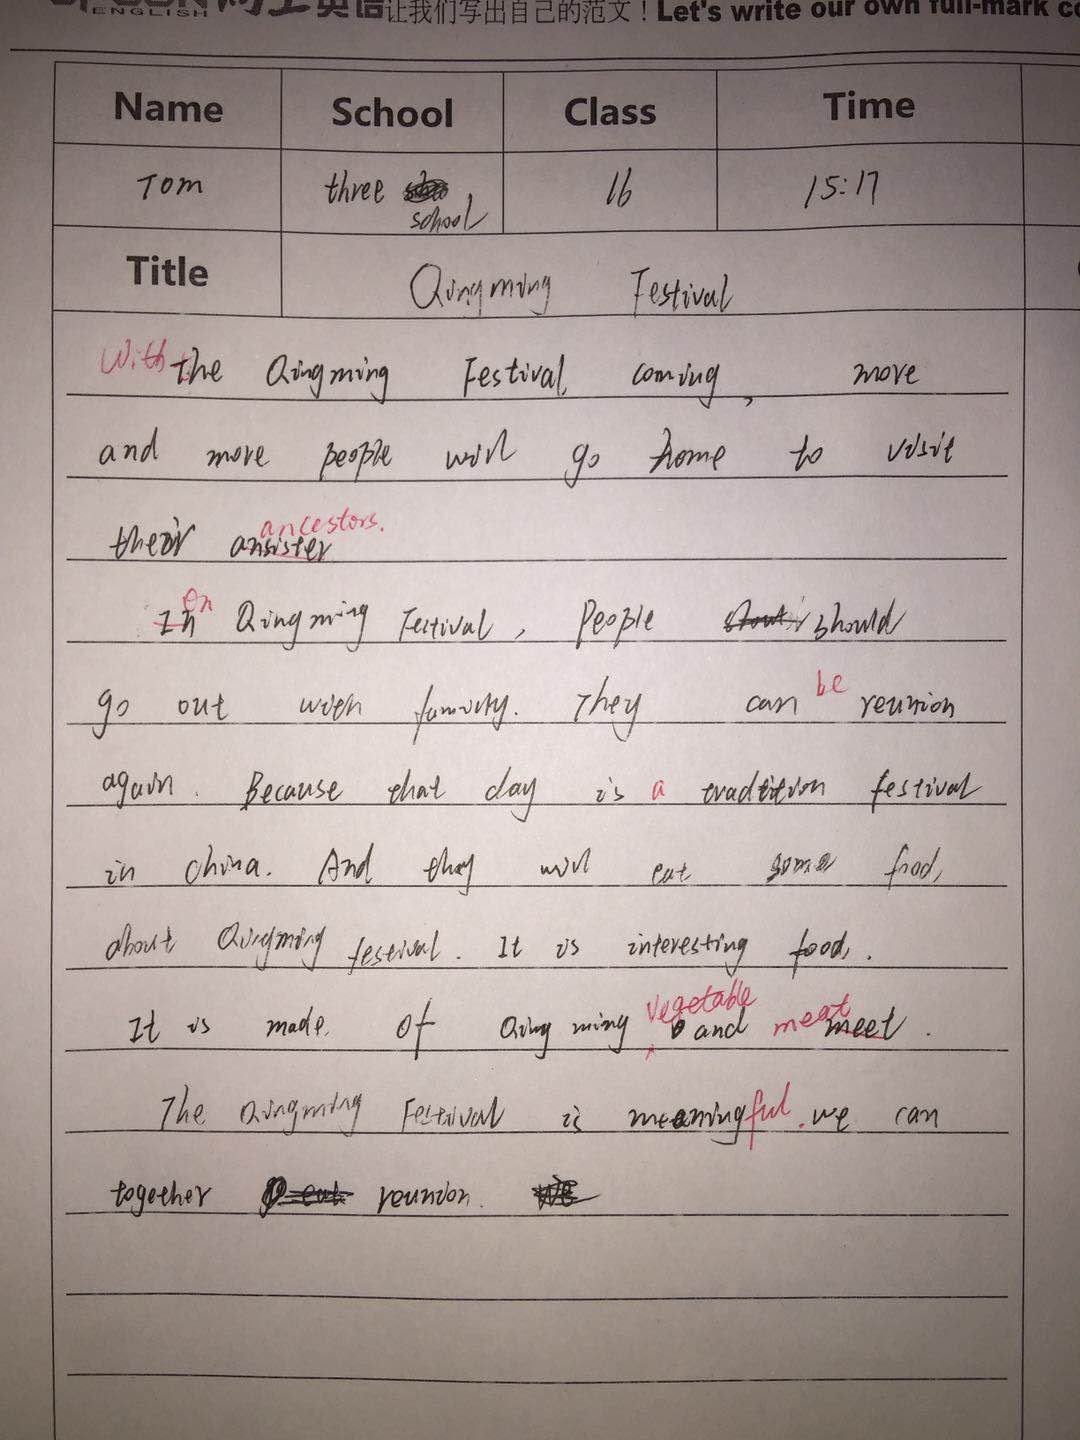 ENGLISH 网上英语 让我们写出自己的范文！Let's write our own full-mark co
Name School Class Time
Tom three school 16 15:17
Title Qingming Festival
With the Qingming Festival coming, more
and more people will go home to visit
ancestors.
their ansister
On
In Qingming Festival, People should
go out with family. They can be reunion
again. Because that day is a tradition festival
in china. And they will eat some food,
about Qingming festival. It is interesting food.
vegetable meat
It is made of Qingming and meet.
The Qingming Festival is meaningful. we can
together reunion.